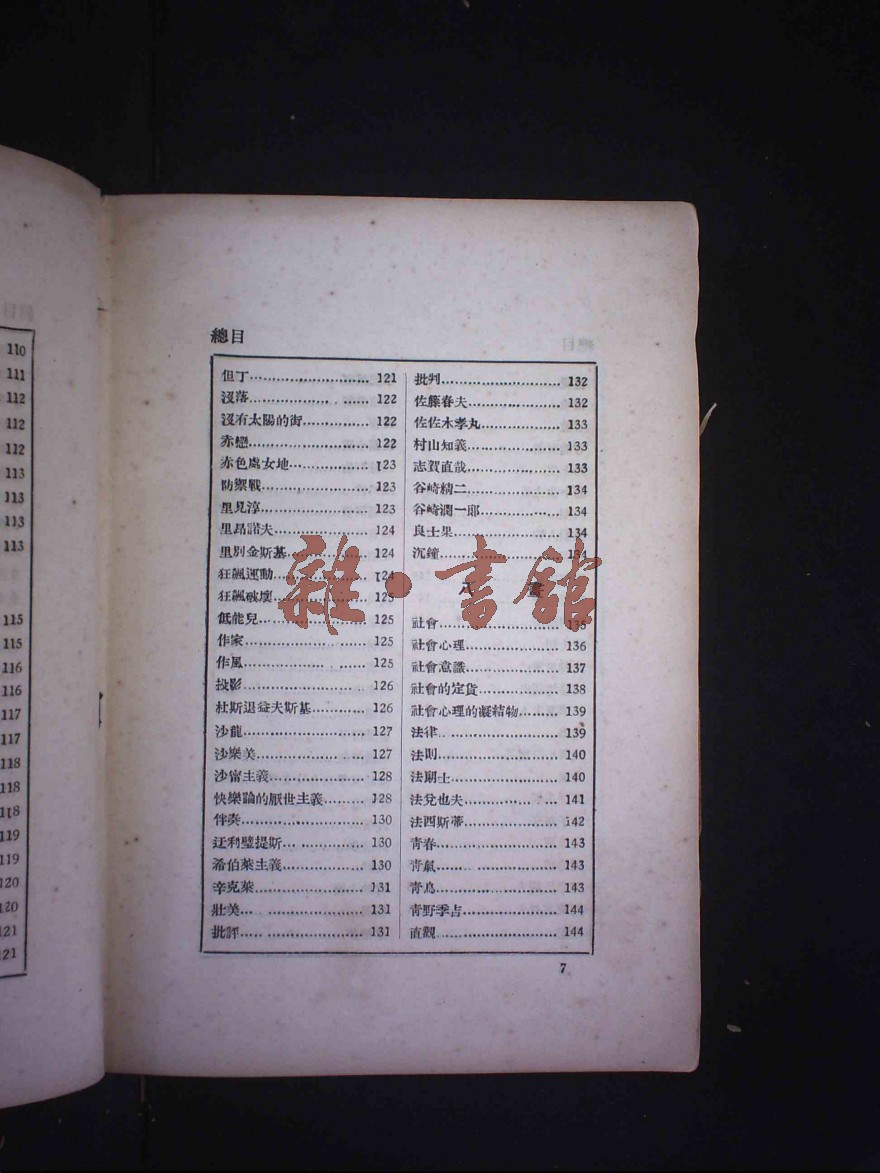 110
111
112
112
112
113
113
113
113
115
115
116
116
117
117
118
118
118
119
119
120
120
121
121
總目
但丁 121
沒落 122
沒有太陽的街 122
赤戀 122
赤色處女地 123
防禦戰 123
里見淳 123
里昂諾夫 124
里別金斯基 124
狂飆運動 124
狂飆破壞 125
低能兒 125
作家 125
作風 125
投影 126
杜斯退益夫斯基 126
沙龍 127
沙樂美 127
沙甯主義 128
快樂論的厭世主義 128
伴奏 130
迂利璧提斯 130
希伯萊主義 130
辛克萊 131
壯美 131
批評 131
批判 132
佐籐春夫 132
佐佐木孝丸 133
村山知義 133
志賀直哉 133
谷崎精二 134
谷崎潤一郎 134
良士果 134
沉鐘 134
八畫
社會 135
社會心理 136
社會意識 137
社會的定貨 138
社會心理的凝結物 139
法律 139
法則 140
法朗士 140
法兌也夫 141
法西斯蒂 142
青春 143
青氣 143
青鳥 143
青野季吉 144
直觀 144
7
雜·書館